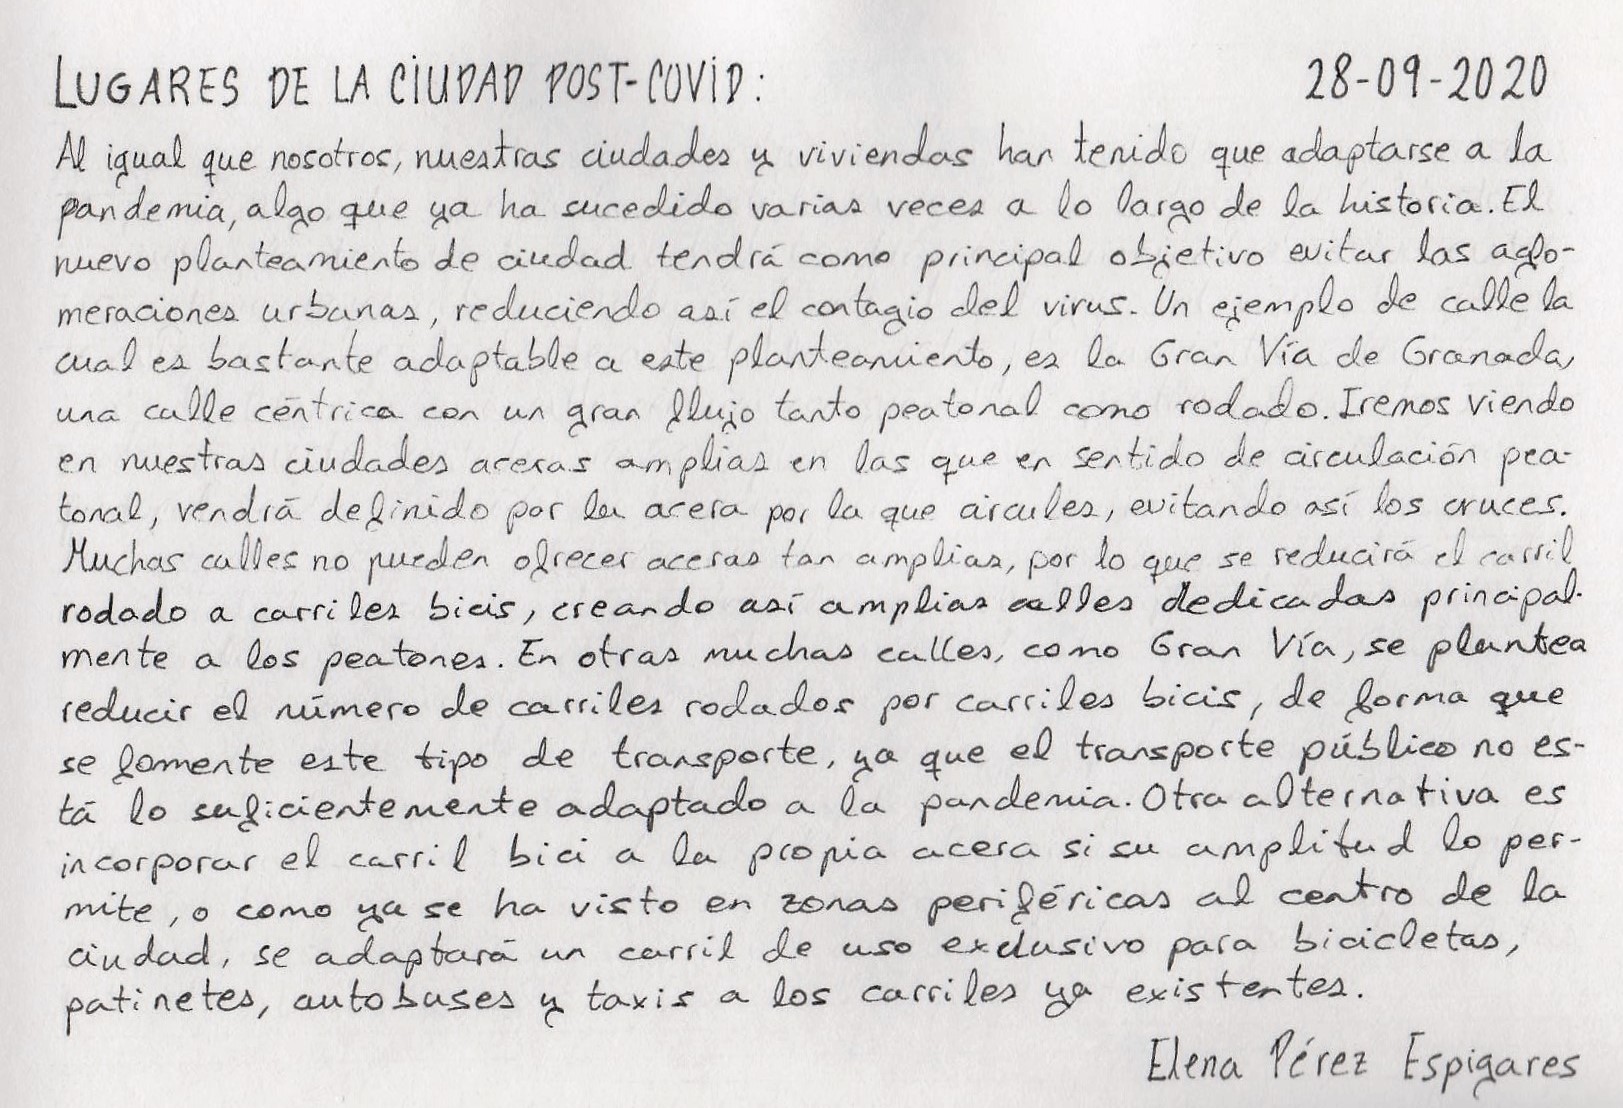 LUGARES DE LA CIUDAD POST-COVID: 28-09-2020
Al igual que nosotros, nuestras ciudades y viviendas han tenido que adaptarse a la
pandemia, algo que ya ha sucedido varias veces a lo largo de la historia. El
nuevo planteamiento de ciudad tendrá como principal objetivo evitar las aglo-
meraciones urbanas, reduciendo así el contagio del virus. Un ejemplo de calle la
cual es bastante adaptable a este planteamiento, es la Gran Vía de Granada,
una calle céntrica con un gran flujo tanto peatonal como rodado. Iremos viendo
en nuestras ciudades aceras amplias en las que en sentido de circulación pea-
tonal, vendrá definido por la acera por la que circules, evitando así los cruces.
Muchas calles no pueden ofrecer aceras tan amplias, por lo que se reducirá el carril
rodado a carriles bicis, creando así amplias calles dedicadas principal-
mente a los peatones. En otras muchas calles, como Gran Vía, se plantea
reducir el número de carriles rodados por carriles bicis, de forma que
se fomente este tipo de transporte, ya que el transporte público no es-
tá lo suficientemente adaptado a la pandemia. Otra alternativa es
incorporar el carril bici a la propia acera si su amplitud lo per-
mite, o como ya se ha visto en zonas periféricas al centro de la
ciudad, se adaptará un carril de uso exclusivo para bicicletas,
patinetes, autobuses y taxis a los carriles ya existentes.
Elena Pérez Espigares